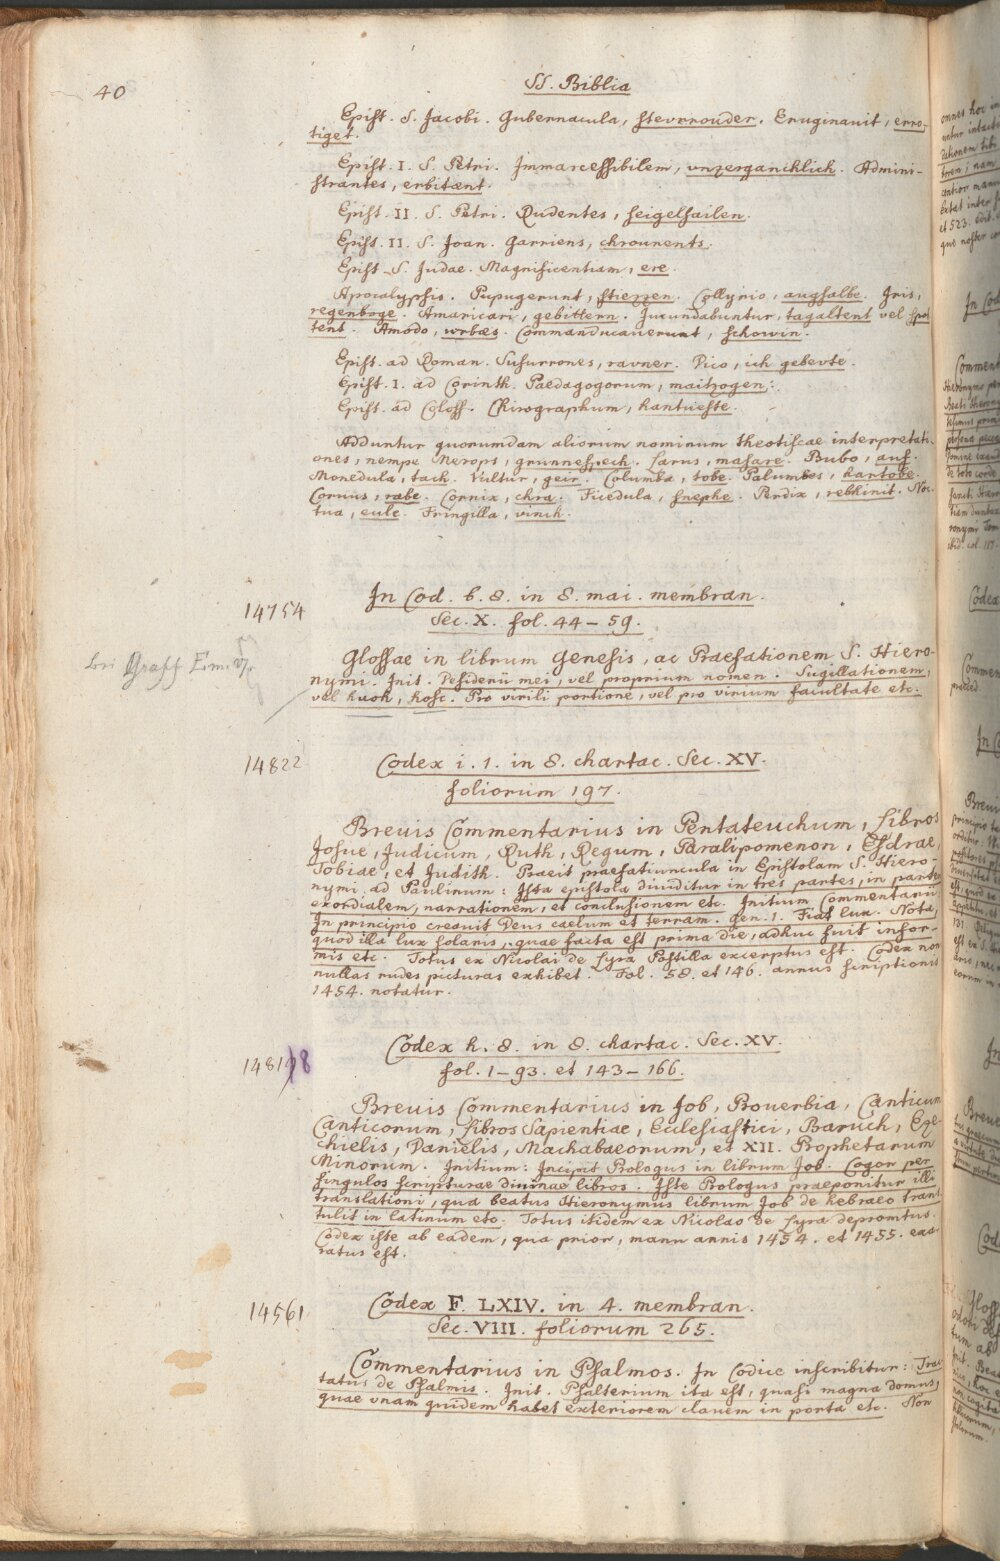 40
SS. Biblia
Epist. S. Jacobi. Gubernacula, stevrrouder. Eruginauit, erro-
tiget.
Epist. I. S. Petri. Immarcessibilem, vnzerganchlich. Admini-
strantes, erbitænt.
Epist. II. S. Petri. Rudentes, seigelsailen.
Epist. II. S. Joan. Garriens, chrounents.
Epist. S. Judae. Magnificentiam, ere.
Apocalypsis. Pupugerunt, stiezzen. Collyrio, augsalbe. Iris,
regenboge. Amaricari, gebittern. Jucundabuntur, tagaltent vel spot
tent. Amodo, wrbæs. Commanducauerunt, schowin.
Epist. ad Roman. Susurrones, ravner. Vico, ich gebevte.
Epist. I. ad Corinth. Paedagogorum, maitzogen.
Epist. ad Coloss. Chirographum, hantueste.
Adduntur quorumdam aliorum nominum theotiscae interpretati-
ones, nempe Merops, grunnespech. Larus, masare. Bubo, auf.
Monedula, tach. Vultur, geir. Columba, tobe. Palumbes, hartobe.
Coruus, rabe. Cornix, chra. Ficedula, snephe. Perdix, rebhinit. Noc-
tua, eule. Fringilla, vinch.
14754
In Cod. b. 8. in 8. mai. membran.
Sec. X. fol. 44–59.
bei Graff Em.
Glossae in librum Genesis, ac Praefationem S. Hiero-
nymi. Init. Desiderii mei, vel proprium nomen. Sugillationem,
vel huoh, hosc. Pro virili portione, vel pro virium facultate etc.
14822
Codex i. 1. in 8. chartac. Sec. XV.
foliorum 197.
Breuis Commentarius in Pentateuchum, Libros
Josue, Judicum, Ruth, Regum, Paralipomenon, Esdrae,
Tobiae, et Judith. Praeit praefatiuncula in Epistolam S. Hiero-
nymi ad Paulinum: Ista epistola diuiditur in tres partes, in partem
exordialem, narrationem, et conclusionem etc. Initium Commentarii
In principio creauit Deus caelum et terram. Gen. 1. Fiat lux. Nota,
quod illa lux solaris, quae facta est prima die, adhuc fuit infor-
mis etc. Totus ex Nicolai de Lyra Postilla excerptus est. Codex non
nullas rudes picturas exhibet. Fol. 58. et 146. annus scriptionis
1454. notatur.
14818
Codex h. 8. in 8. chartac. Sec. XV.
fol. 1–93. et 143–166.
Breuis Commentarius in Job, Prouerbia, Canticum
Canticorum, Libros Sapientiae, Ecclesiastici, Baruch, Eze-
chielis, Danielis, Machabaeorum, et XII. Prophetarum
Minorum. Initium: Incipit Prologus in librum Job. Cogor per
singulos scripturae diuinae libros. Iste Prologus praeponitur illi
translationi, qua beatus Hieronymus librum Job de hebraeo trans
tulit in latinum etc. Totus itidem ex Nicolao de Lyra depromtus.
Codex iste ab eadem, qua prior, manu annis 1454. et 1455. exa-
ratus est.
14561
Codex F. LXIV. in 4. membran.
Sec. VIII. foliorum 265.
Commentarius in Psalmos. In Codice inscribitur: Trac
tatus de Psalmis. Init. Psalterium ita est, quasi magna domus,
quae vnam quidem habet exteriorem clauem in porta etc. Non